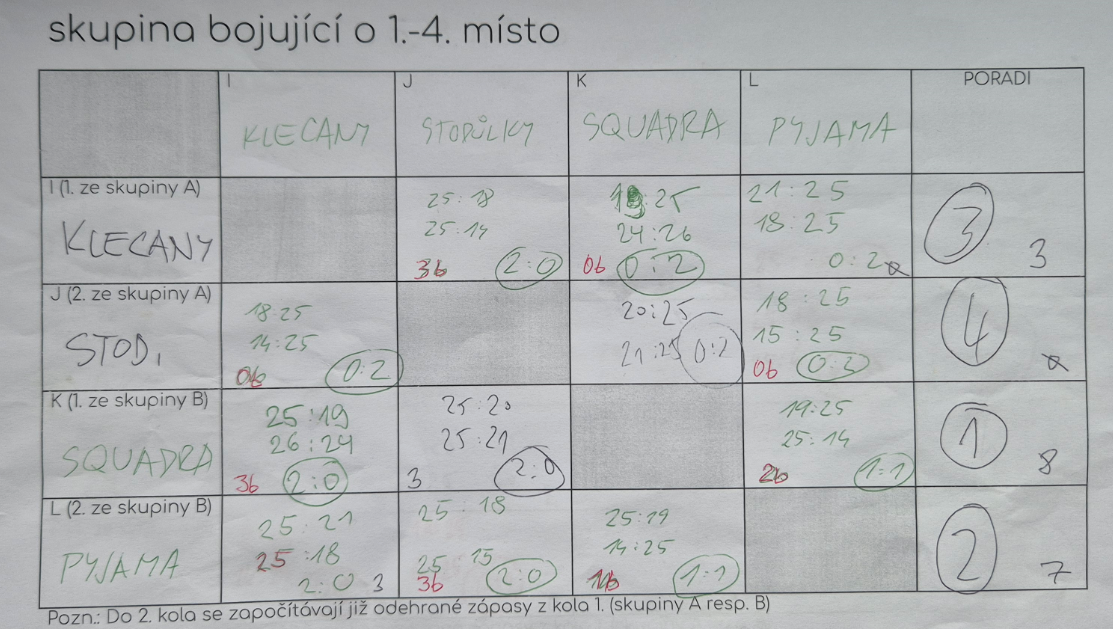 skupina bojující o 1.-4. místo
I J K L PORADI
KLECANY STODŮLKY SQUADRA PYJAMA
I (1. ze skupiny A)
KLECANY
25:18
25:14
3b 2:0
:25
24:26
0b 0:2
21:25
18:25
0:2
3 3
J (2. ze skupiny A)
STOD.
18:25
14:25
0b 0:2
20:25
21:25 0:2
18:25
15:25
0b 0:2
4
K (1. ze skupiny B)
SQUADRA
25:19
26:24
3b 2:0
25:20
25:21
3 2:0
19:25
25:14
2b 1:1
1 8
L (2. ze skupiny B)
PYJAMA
25:21
25:18
2:0 3
25:18
25:15
3b 2:0
25:19
14:25
1b 1:1
2 7
Pozn.: Do 2. kola se započítávají již odehrané zápasy z kola 1. (skupiny A resp. B)